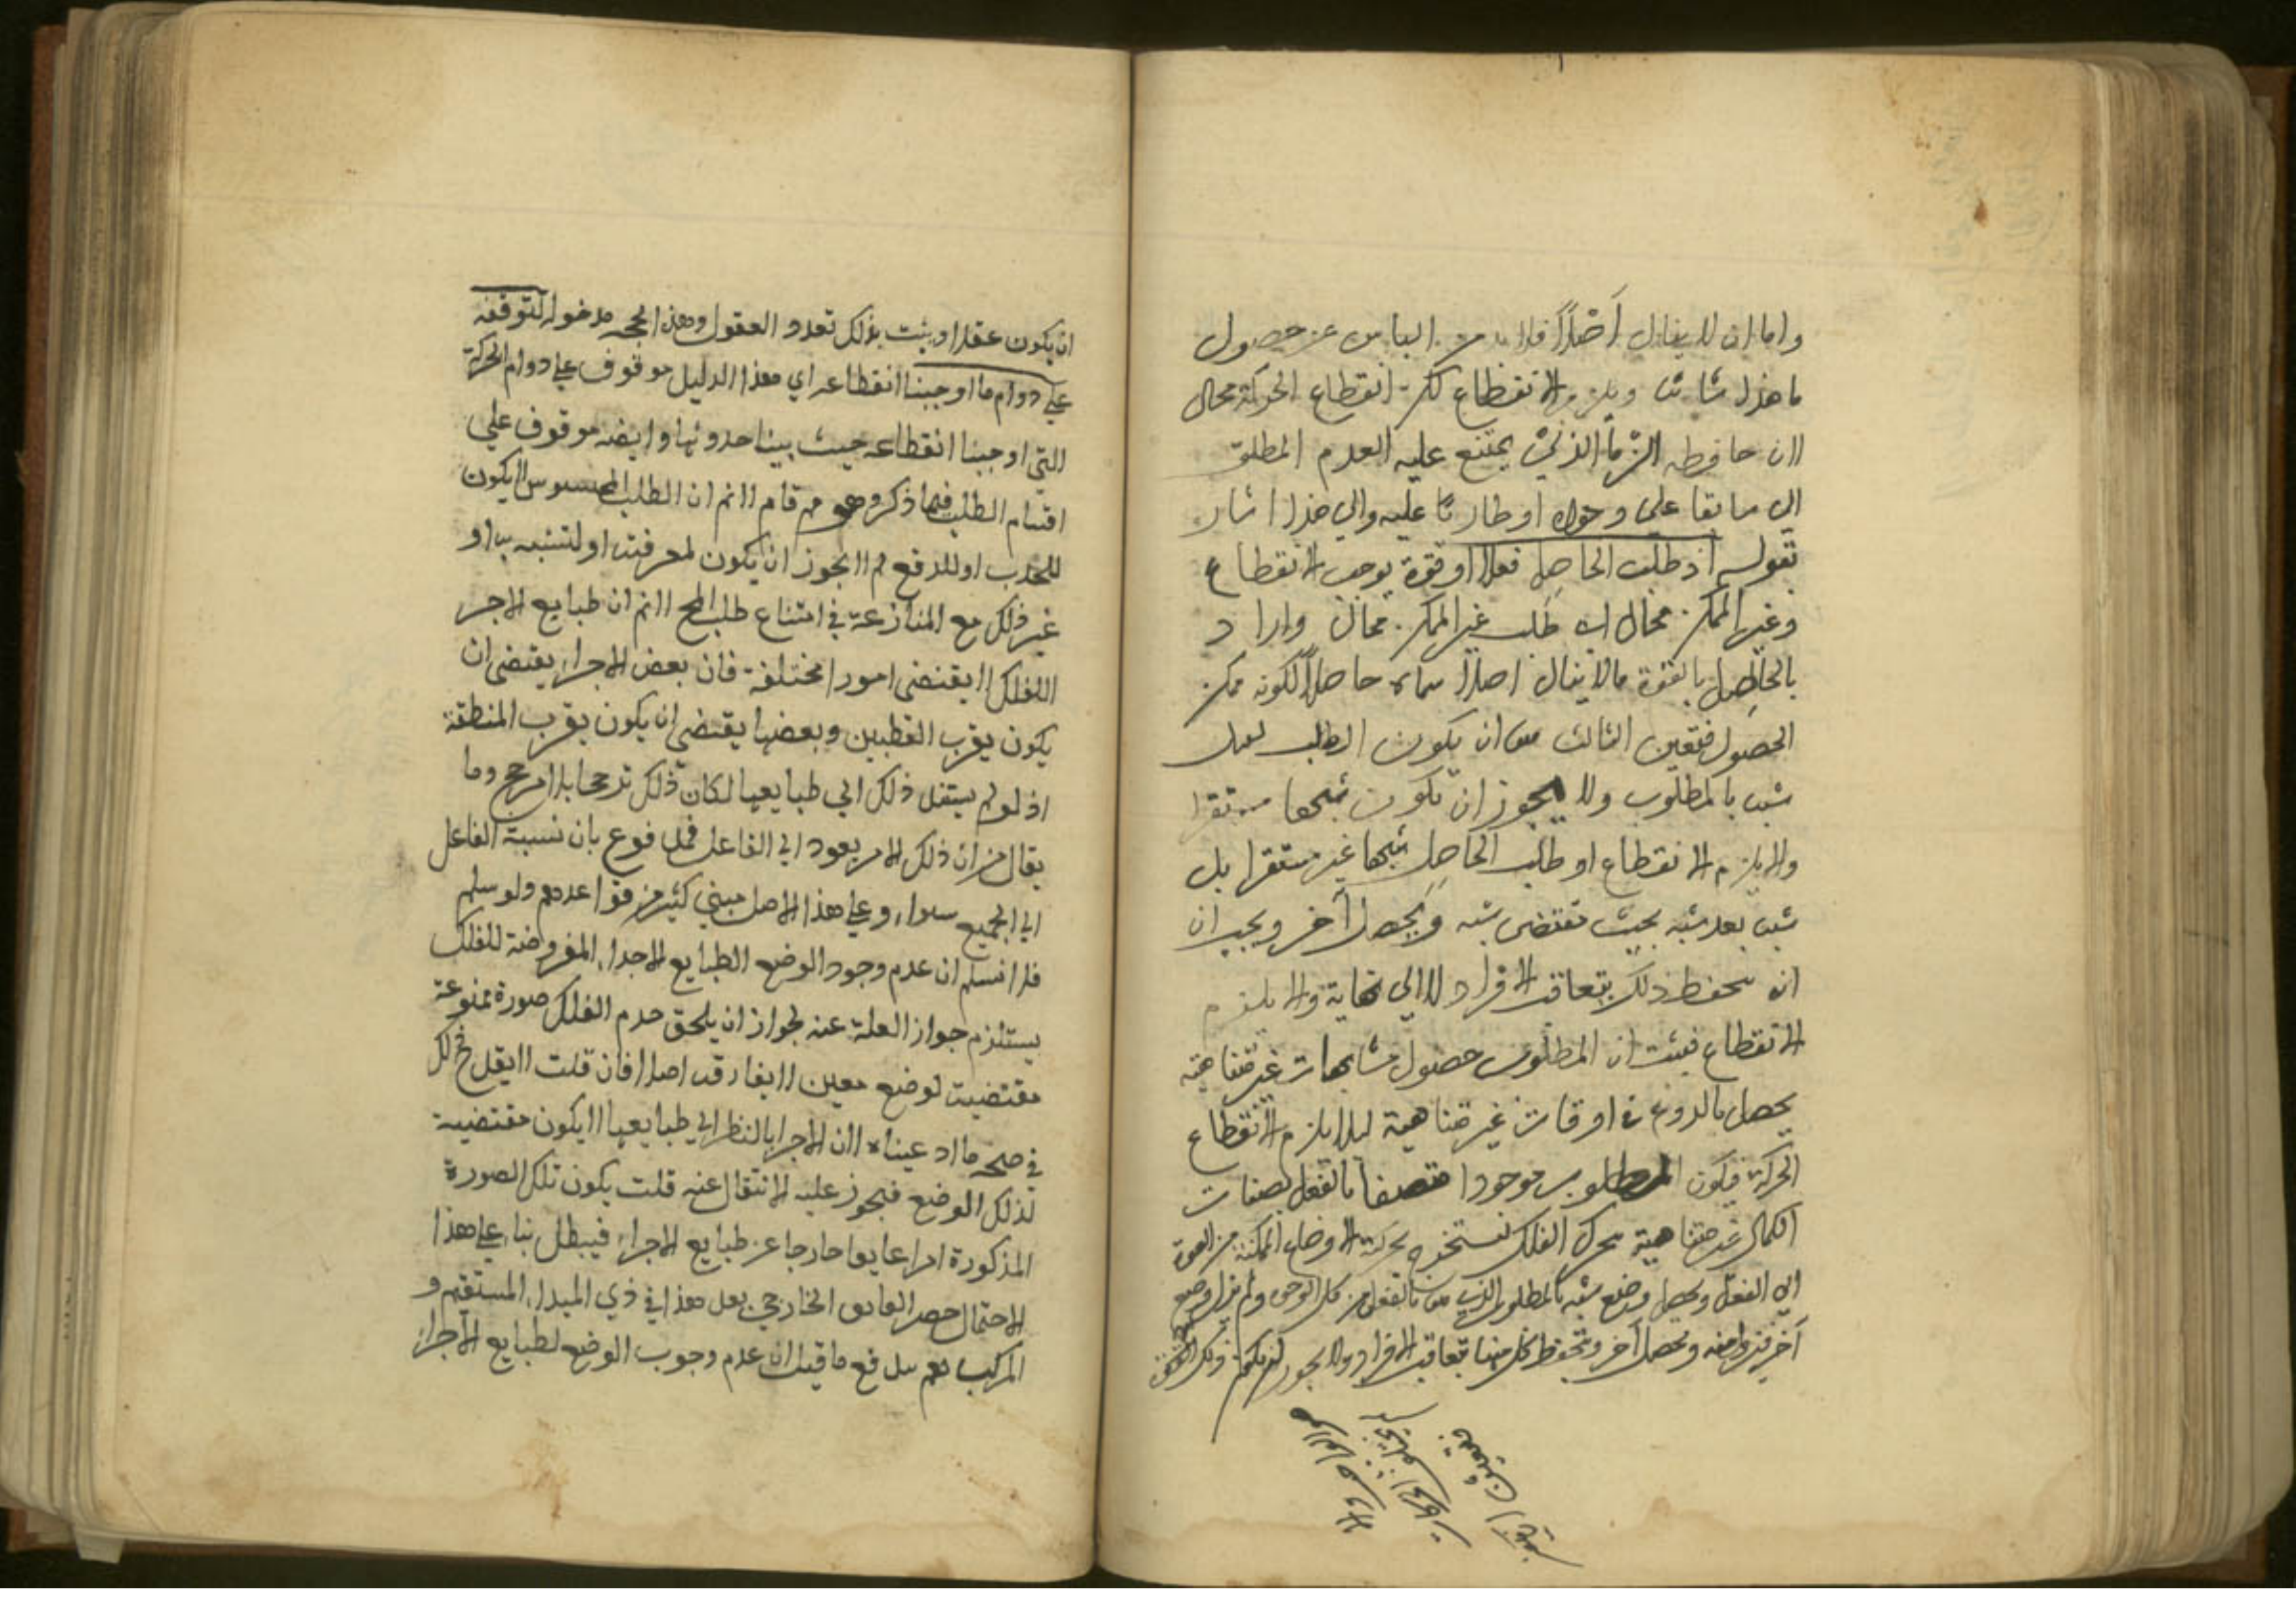 واما ان لا ينال اصلا فلا بد من الياس عن حصول
ما هذا شانه ويلزم الانقطاع لكن انقطاع الحركة محال
لان حافظه الزمان الذي يمتنع عليه العدم المطلق
سابقا على وجوده او طاريا عليه والى هذا اشار
بقوله اذ طلب الحاصل فعلا او قوة يوجب الانقطاع
وغير الممكن محال اي طلب غير الممكن محال واراد
بالحاصل بالقوة ما لا ينال اصلا سماه حاصلا لكونه ممكن
الحصول فتعين الثالث ان يكون الطلب
شبه بالمطلوب ولا يجوز ان يكون شبها مستقرا
والا يلزم الانقطاع او طلب الحاصل شبها غير مستقر بل
شبه بعد شبه بحيث تنقضى شبه ويحصل آخر ويجب ان
يحفظ ذلك بتعاقب الافراد لا الى نهاية والا يلزم
الانقطاع فيثبت ان المطلوب حصول مشابهات غير متناهية
يحصل في اوقات غير متناهية ليلا يلزم الانقطاع
الحركة فيكون المطلوب موجودا متصفا بالفعل بصفات
الكمال غير متناهية بحركة الاوضاع الممكنة من القوة
الى الفعل ويحصل شبه بالمطلوب الذي بالفعل من كل الوجوه ولم يزل وضع
آخر ويحصل آخر بتعاقب الافراد ولا يجوز
ان يكون عقلا اذ يثبت بذلك تعدد العقول وهذه الحجة مدخولة لتوقفه
على دوام ما اوجبنا انقطاعه اي هذا الدليل موقوف على دوام الحركة
التي اوجبنا انقطاعه حيث بينا حدوثها وايضه موقوف على
اقسام الطلب فيما ذكر وهو مم قام لانم ان الطلب المحسوس لا يكون
للجذب او للدفع لم لا يجوز ان يكون لمعرفته او لتشبه به او
غير ذلك مع المنازعة في امتناع طلب المح لانم ان طبايع الاجزاء
الفلك لا يقتضى امورا مختلفة فان بعض الاجزاء يقتضى ان
يكون بقرب القطبين وبعضها يقتضى ان يكون بقرب المنطقة
اذ لو لم يستند ذلك الى طبايعها لكان ذلك ترجحا بلا مرجح وما
يقال من ان ذلك الامر يعود الى الفاعل فمدفوع بان نسبة الفاعل
الى الجميع سواء وعلى هذا الاصل مبني كثير من قواعدهم ولو سلم
فلا نسلم ان عدم وجود الوضع الطبايع الاجزاء المفروضة للفلك
يستلزم جواز العلة عنه لجواز ان يلحق جرم الفلك صورة ممنوعة
مقتضية لوضع معين لا يفارقه اصلا فان قلت لا يقدح ذلك
في صحة ما ادعيناه لان الاجزاء بالنظر الى طبايعها لا يكون مقتضية
لذلك الوضع فيجوز عليه الانتقال عنه قلت يكون تلك الصورة
المذكورة امرا عايقا خارجا عن طبايع الاجزاء فيبطل بناء على هذا
الاحتمال حصر العايق الخارجي هذا في ذي الميل المستقيم و
المركب نعم يدفع ما قيل ان عدم وجوب الوضع لطبايع الاجزاء